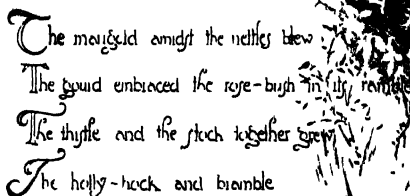 The marigold amidst the nettles blew
The gourd embraced the rose-bush in its ramble
The thistle and the stock together grew
The holly-hock and bramble